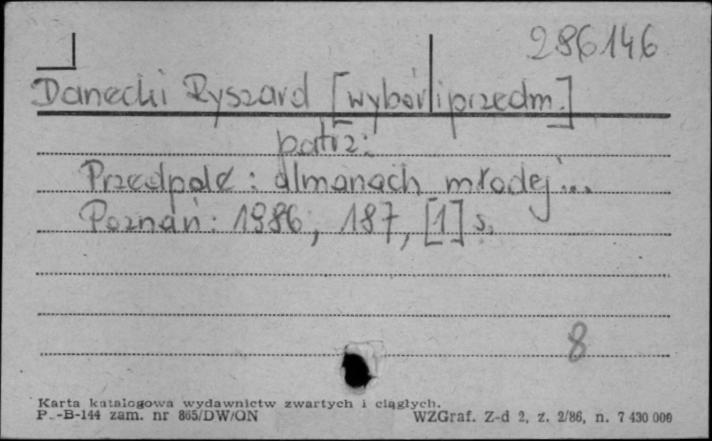 286146
Danecki Ryszard [wybór i przedm.]
patrz:
Przedpole : almanach młodej ...
Poznań : 1986, 187, [1] s.
8
Karta katalogowa wydawnictw zwartych i ciągłych.
P.-B-144 zam. nr 865/DW/ON WZGraf. Z-d 2, z. 2/86, n. 7 430 000